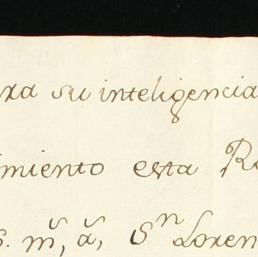 ra su inteligencia
imiento esta R
s. m.s, a.s, Sn Loren